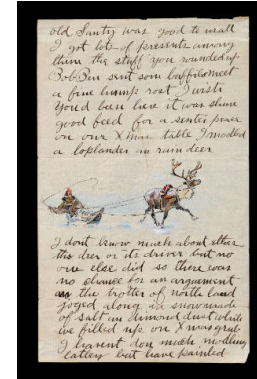 old Santy was good to us all
I got lots of presents among
them the stuff you rounded up
Bob Pen sent som buffilo meet
a fine hump rost I wish
You'd been here it was shure
good feed for a
on our Xmas table I modled
a loplander an rain deer
I dont know much about
this deer or its driver but no
one else did so there was
no chance for an argument
as the trotter of north land
joged along in snow made
of salt an dimond dust while
we filled up on Xmas grub
I havent don much modling
latley but have painted